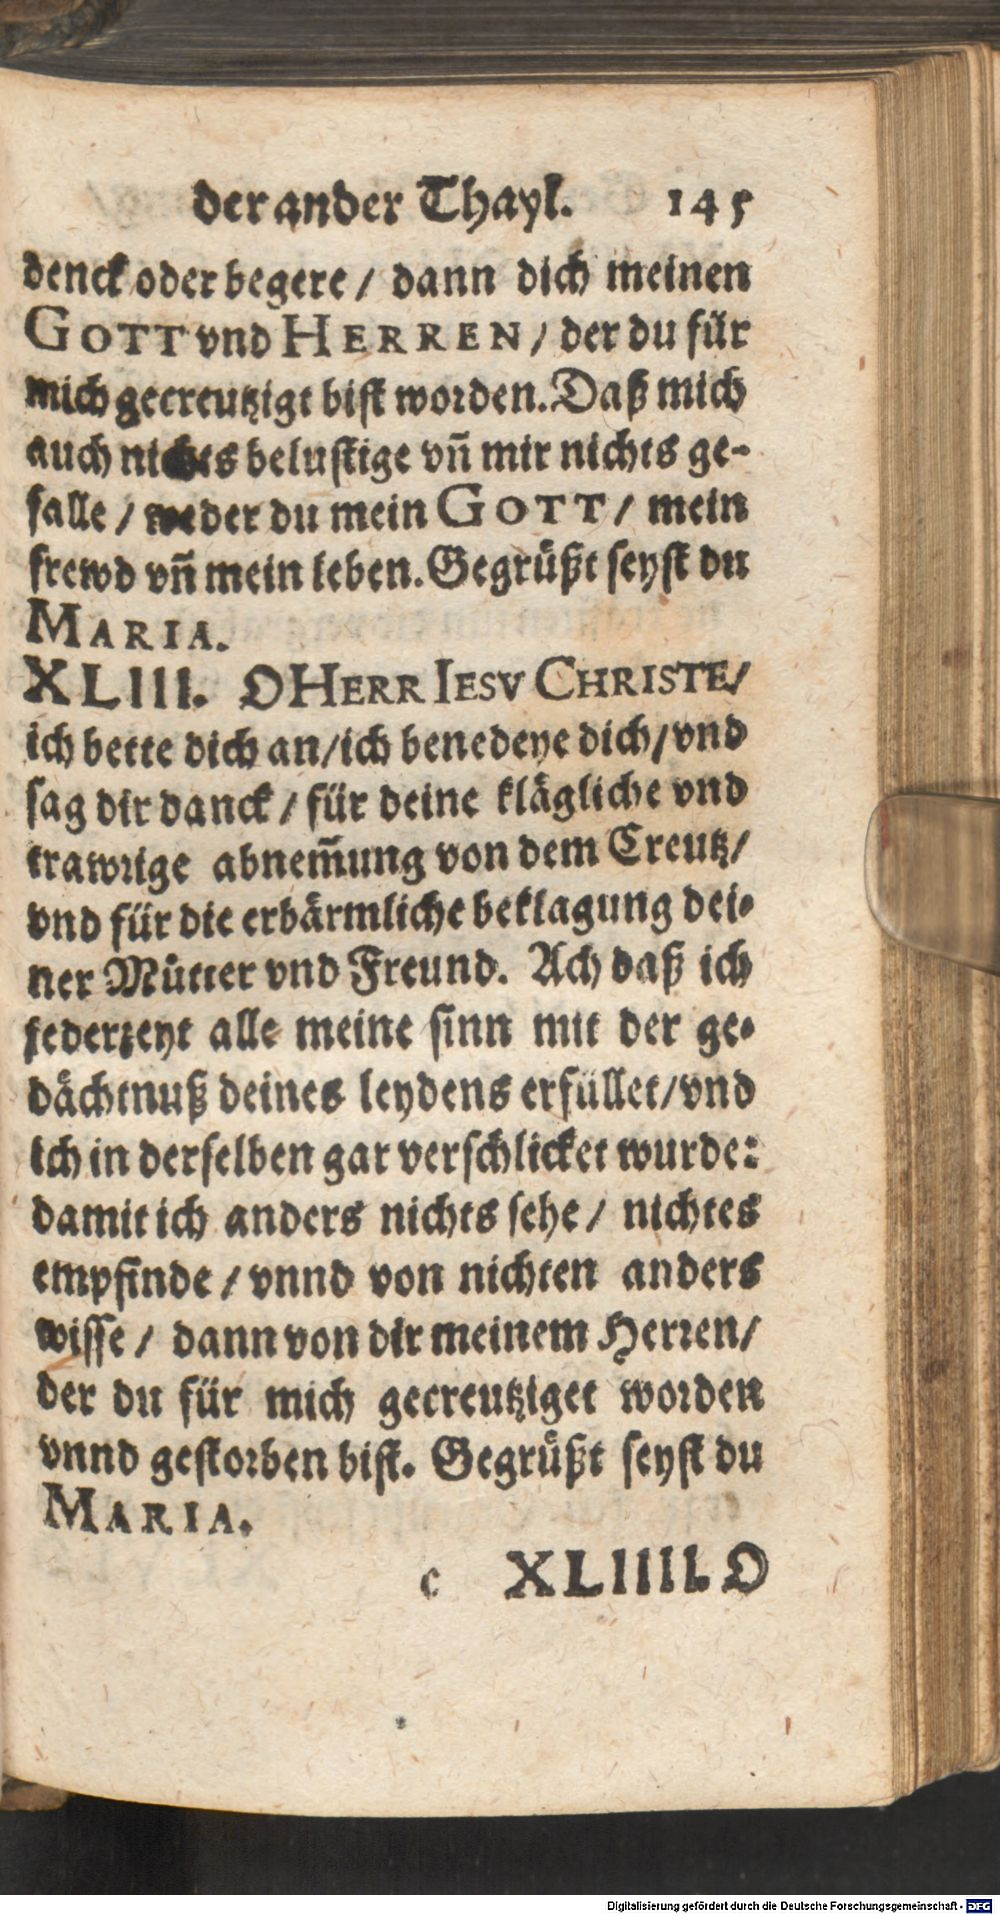 der ander Thayl. 145
denck oder begere / dann dich meinen
GOTT vnd HERREN / der du für
mich gecreutzigt bist worden. Daß mich
auch nichts belustige vñ mir nichts ge-
falle / weder du mein GOTT / mein
frewd vñ mein leben. Gegrüßt seyst du
MARIA.
XLIII. O HERR IESV CHRISTE /
ich bette dich an / ich benedeye dich / vnd
sag dir danck / für deine klägliche vnd
trawrige abnem̃ung von dem Creutz /
vnd für die erbärmliche beklagung dei-
ner Mütter vnd Freund. Ach daß ich
jederzeyt alle meine sinn mit der ge-
dächtnuß deines leydens erfüllet / vnd
ich in derselben gar verschlicket wurde:
damit ich anders nichts sehe / nichtes
empfinde / vnnd von nichten anders
wisse / dann von dir meinem Herren /
der du für mich gecreutziget worden
vnnd gestorben bist. Gegrüßt seyst du
MARIA.
c XLIIII. O
Digitalisierung gefördert durch die Deutsche Forschungsgemeinschaft - DFG